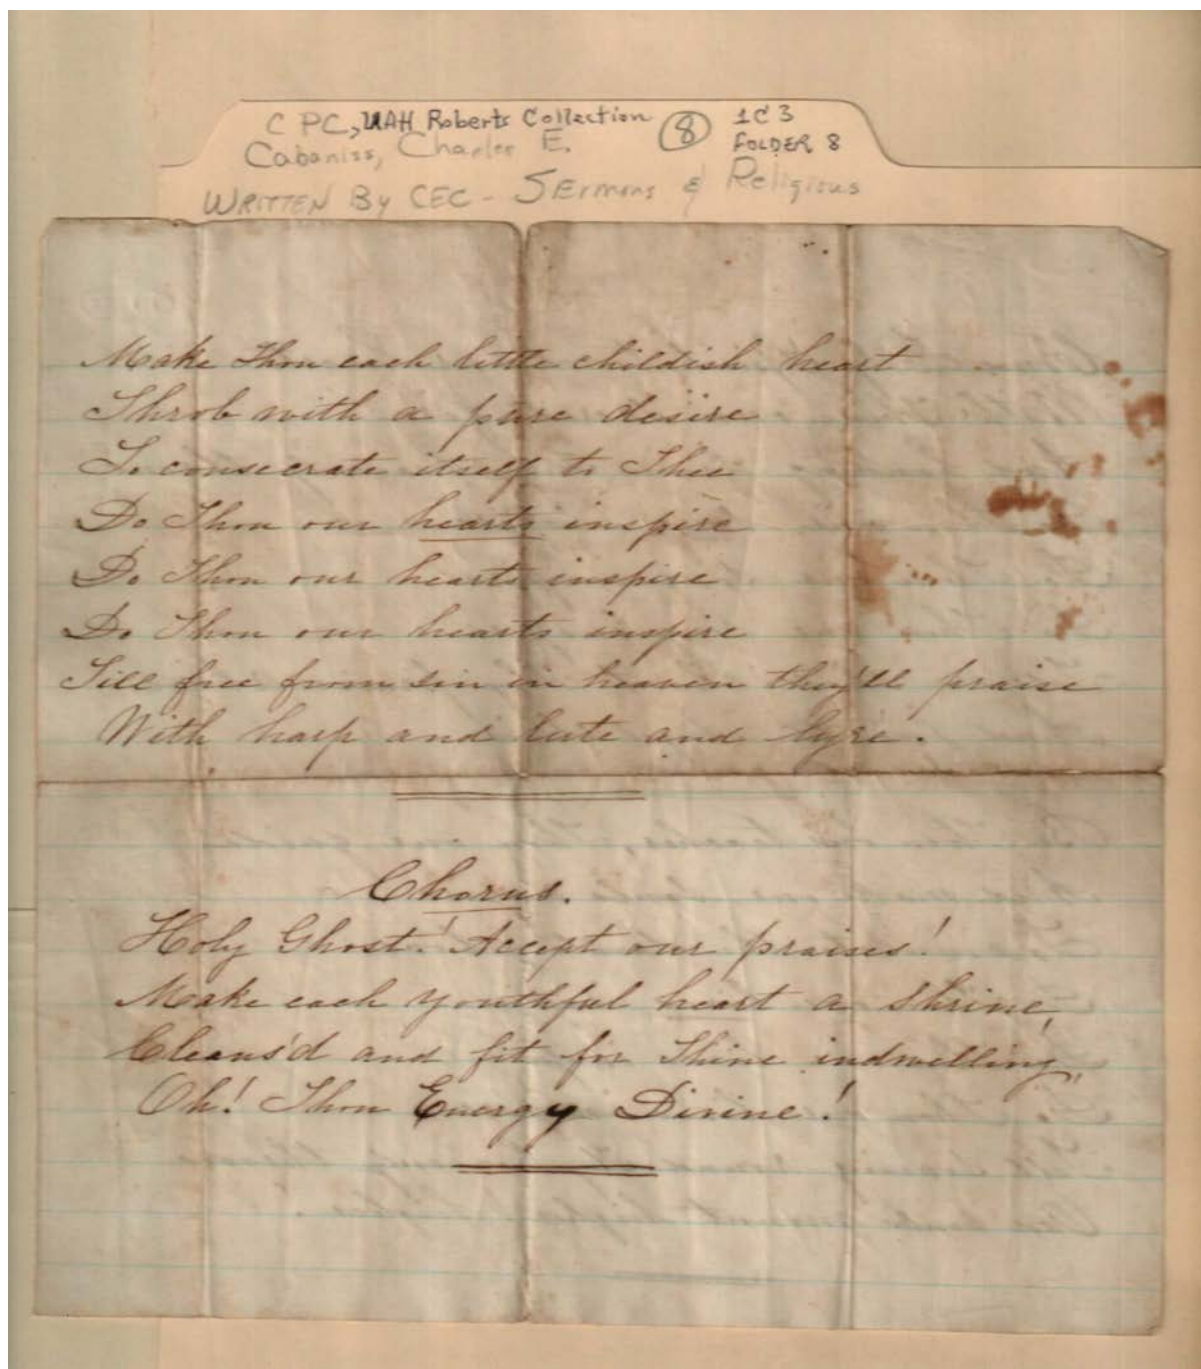 C PC, UAH Roberts Collection ⑧ 1C3
Cabaniss, Charles E. FOLDER 8
WRITTEN By CEC - SErmons & Religious
Make Thou each little childish heart
Throb with a pure desire
To consecrate itself to Thee
Do Thou our hearts inspire
Do Thou our hearts inspire
Do Thou our hearts inspire
Till free from sin in heaven they'll praise
With harp and lute and lyre.
Chorus.
Holy Ghost! Accept our praises!
Make each youthful heart a shrine,
Cleans'd and fit for Thine indwelling,
Oh! Thou Energy Divine!